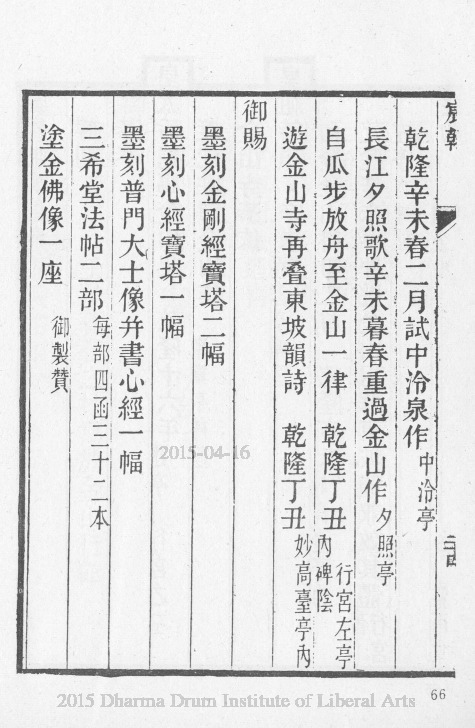 宸翰
二十四
乾隆辛未春二月試中泠泉作 中泠亭
長江夕照歌辛未暮春重過金山作 夕照亭
自瓜步放舟至金山一律 乾隆丁丑 行宮左亭內碑陰
遊金山寺再叠東坡韻詩 乾隆丁丑 妙高臺亭內
御賜
墨刻金剛經寶塔二幅
墨刻心經寶塔一幅
墨刻普門大士像并書心經一幅
三希堂法帖二部 每部四函三十二本
塗金佛像一座 御製贊
2015-04-16
66
2015 Dharma Drum Institute of Liberal Arts